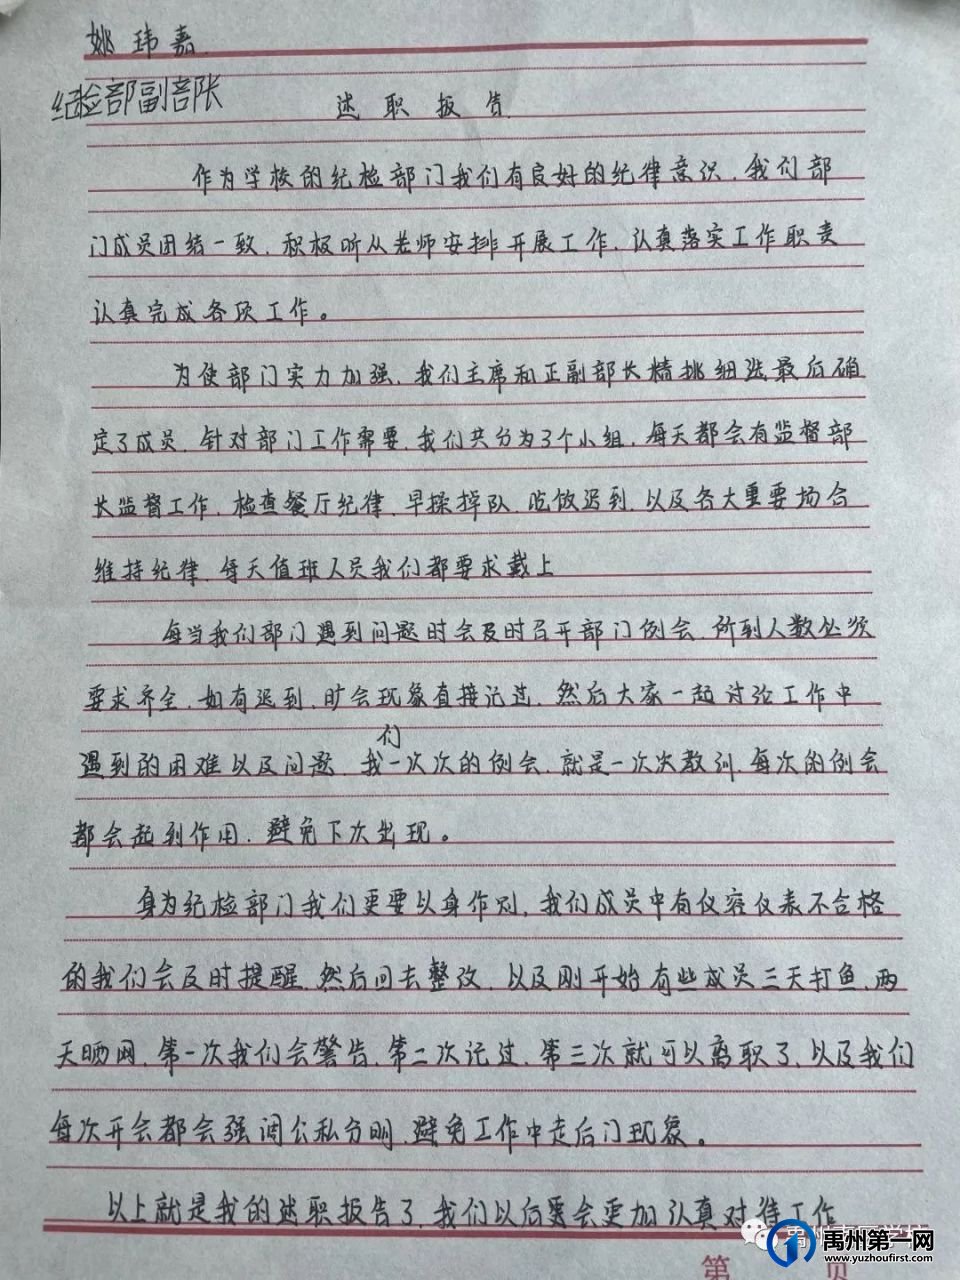 姚玮嘉
纪检部副部长
述职报告
作为学校的纪检部门我们有良好的纪律意识,我们部
门成员团结一致,积极听从老师安排开展工作,认真落实工作职责
认真完成各项工作。
为使部门实力加强,我们主席和正副部长精挑细选最后确
定了成员,针对部门工作需要,我们共分为3个小组,每天都会有监督部
长监督工作,检查餐厅纪律,早操掉队,吃饭迟到,以及各大重要场合
维持纪律,每天值班人员我们都要求戴上
每当我们部门遇到问题时会及时召开部门例会,所到人数必须
要求齐全,如有迟到,旷会现象直接记过,然后大家一起讨论工作中
遇到的困难以及问题,我们一次次的例会,就是一次次教训,每次的例会
都会起到作用,避免下次出现。
身为纪检部门我们更要以身作则,我们成员中有仪容仪表不合格
的我们会及时提醒,然后回去整改,以及刚开始有些成员三天打鱼,两
天晒网,第一次我们会警告,第二次记过,第三次就可以离职了,以及我们
每次开会都会强调公私分明,避免工作中走后门现象。
以上就是我的述职报告了,我们以后要会更加认真对待工作
第 页
禹州第一网
www.yuzhoufirst.com